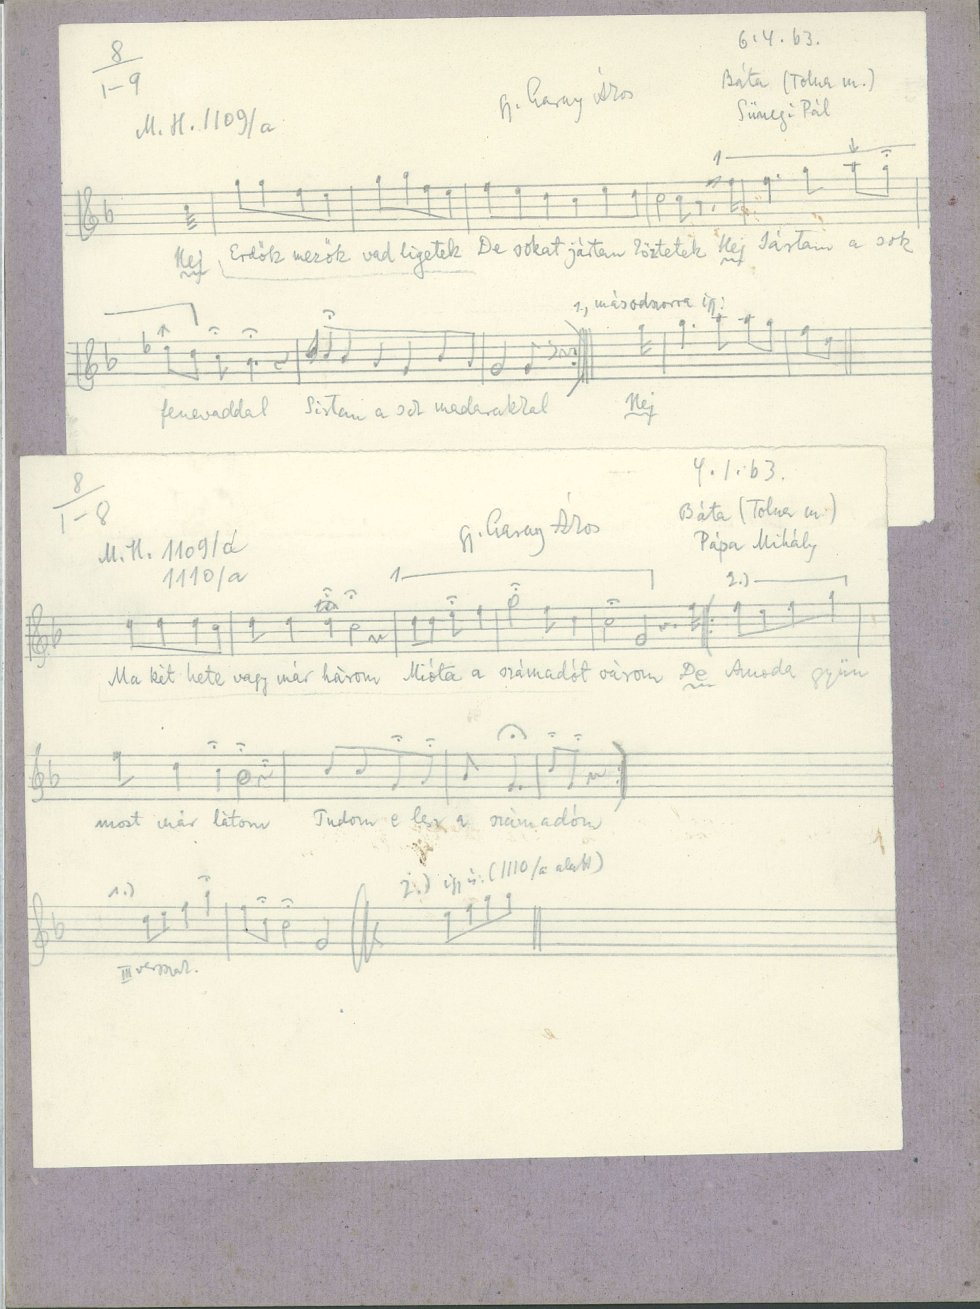 8
1-9
M. H. 1109/a
gy. Garay Ákos
6.4.b3.
Báta (Tolna m.)
Sümegi Pál
1
Hej Erdők mezők vad ligetek De sokat jártam köztetek Hej Jártam a sok
1, másodszorra így:
fenevaddal Sírtam a sok madarakkal Hej
8
1-8
M. H. 1109/d
1110/a
gy. Garay Ákos
4.1.b3.
Báta (Tolna m.)
Pápa Mihály
1
2.)
Ma két hete vagy már három Mióta a számadót várom De Amoda gyün
most már látom Tudom e lesz a számadóm
1.)
2.) így is. (1110/a alatt)
III versszak.